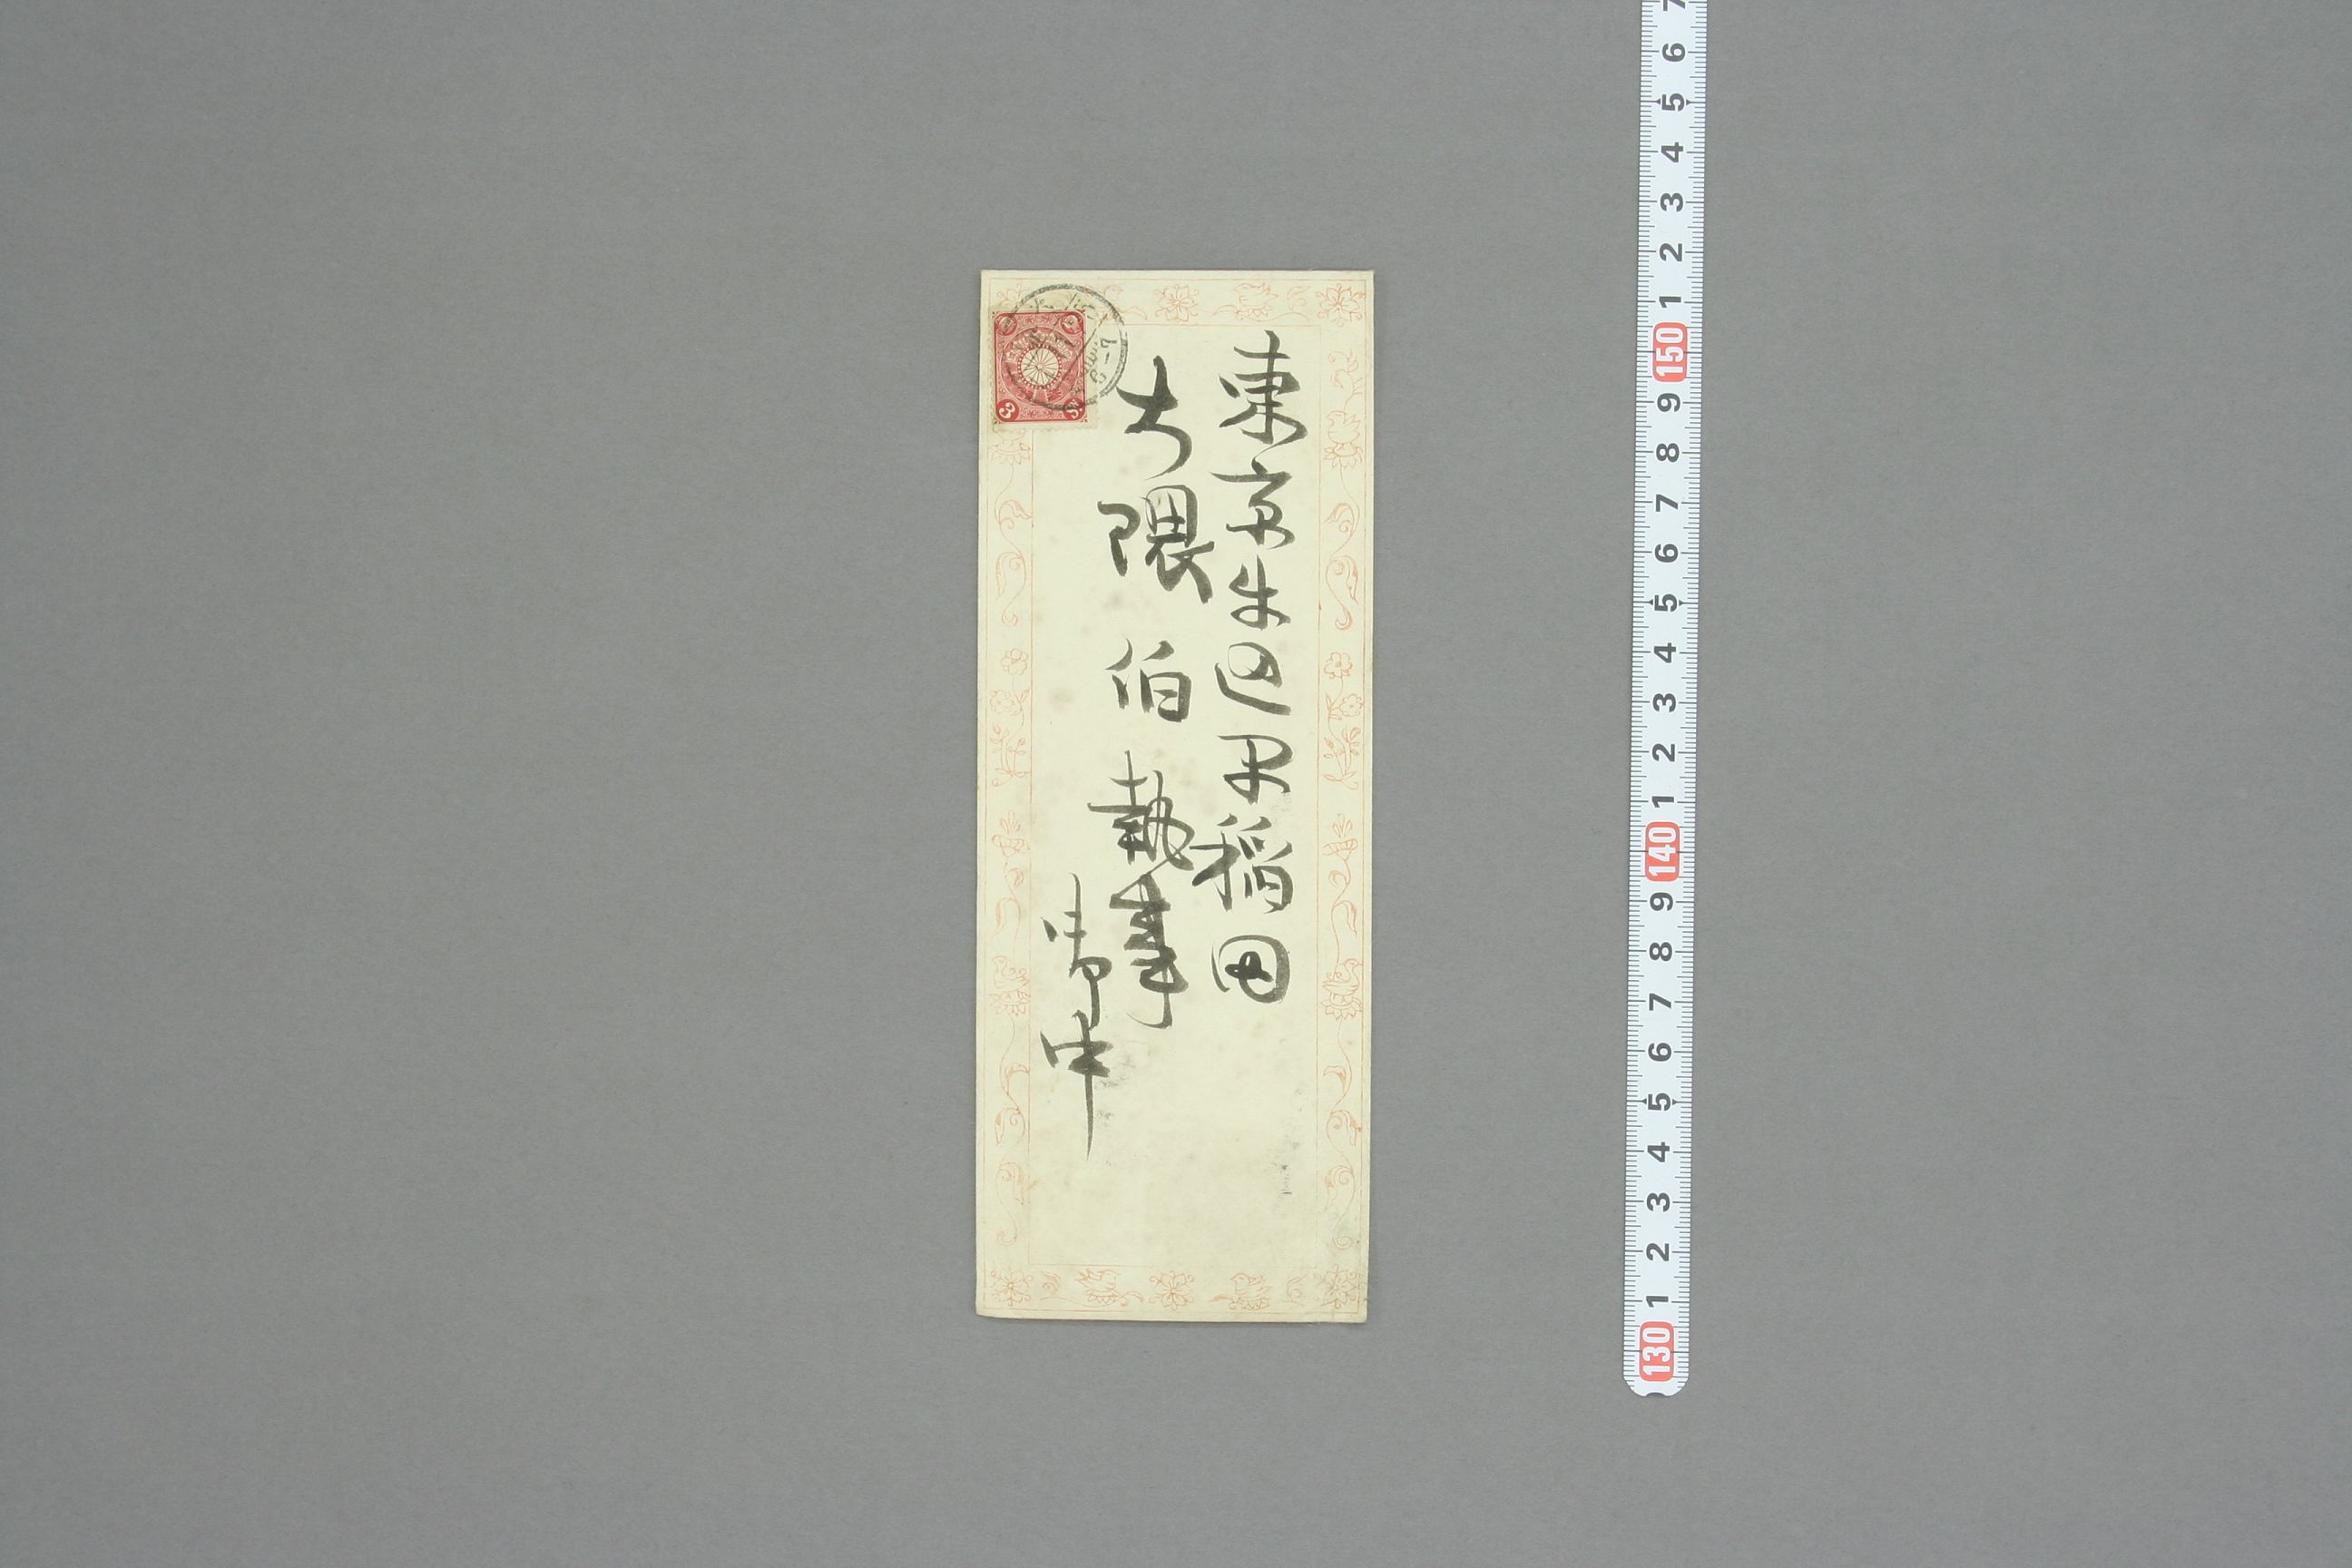 東京牛込早稲田
大隈伯執事
御中
3
7
6
5
4
3
2
1
150
9
8
7
6
5
4
3
2
1
140
9
8
7
6
5
4
3
2
1
130